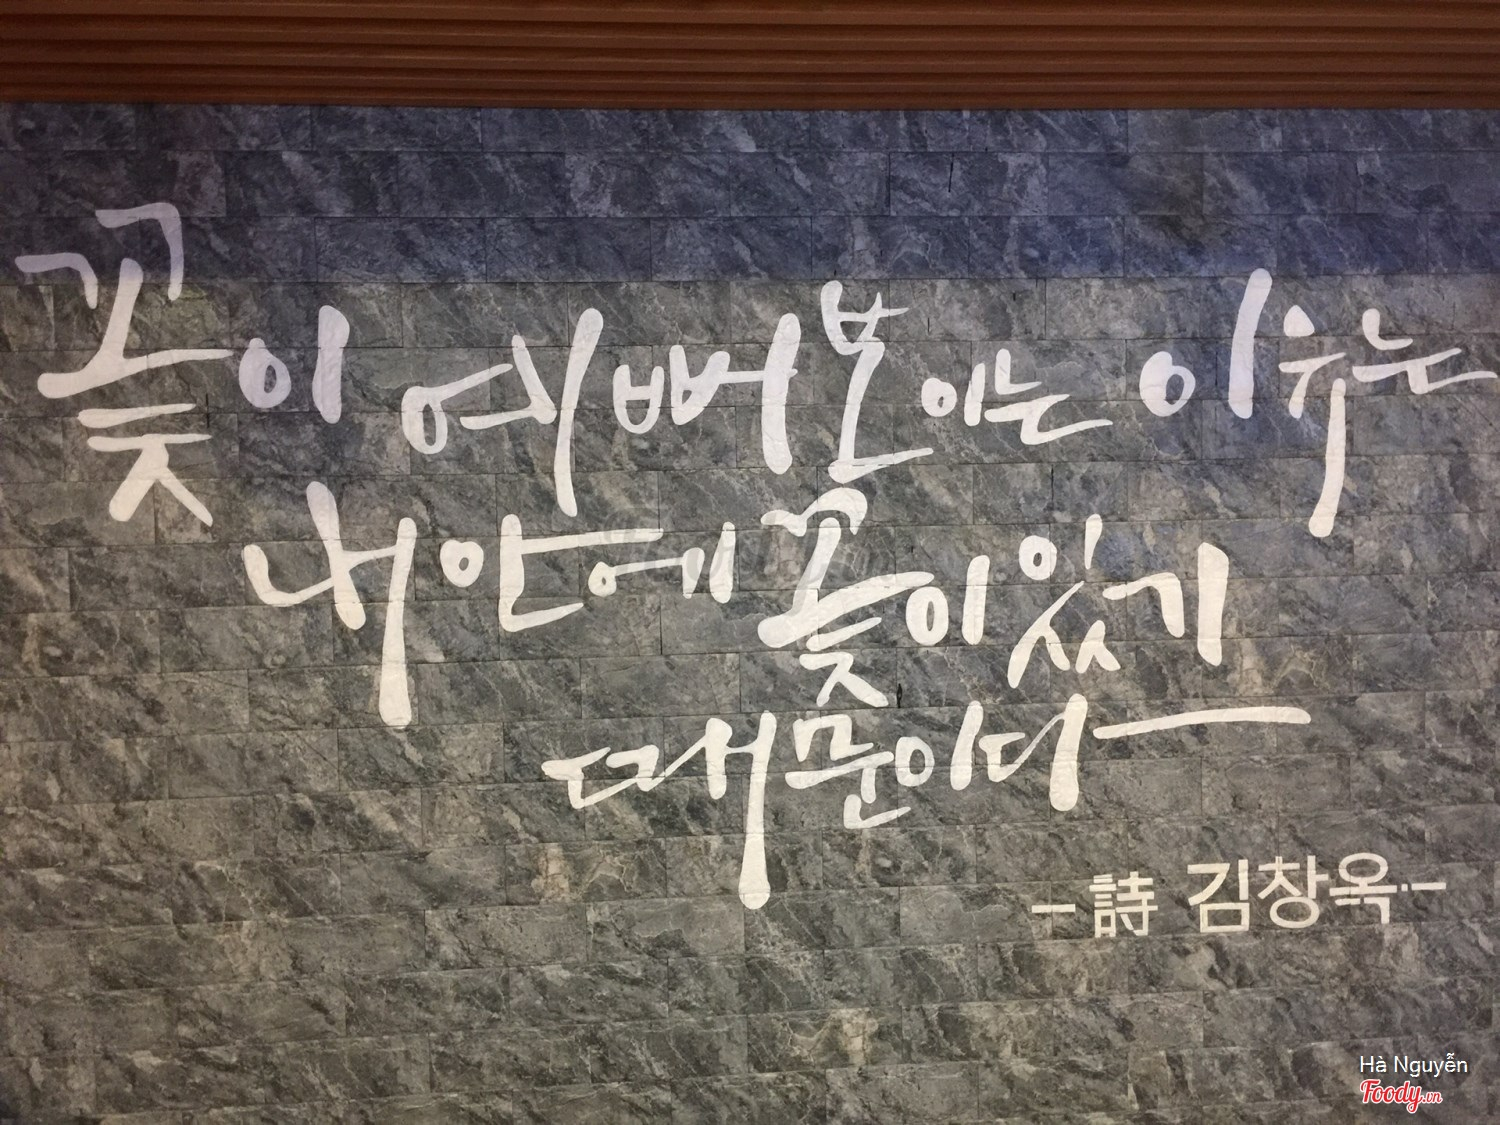 꽃이 예뻐 보이는 이유는
내 안에 꽃이 있기
때문이다
- 詩 김창옥 -
Hà Nguyễn
Foody.vn